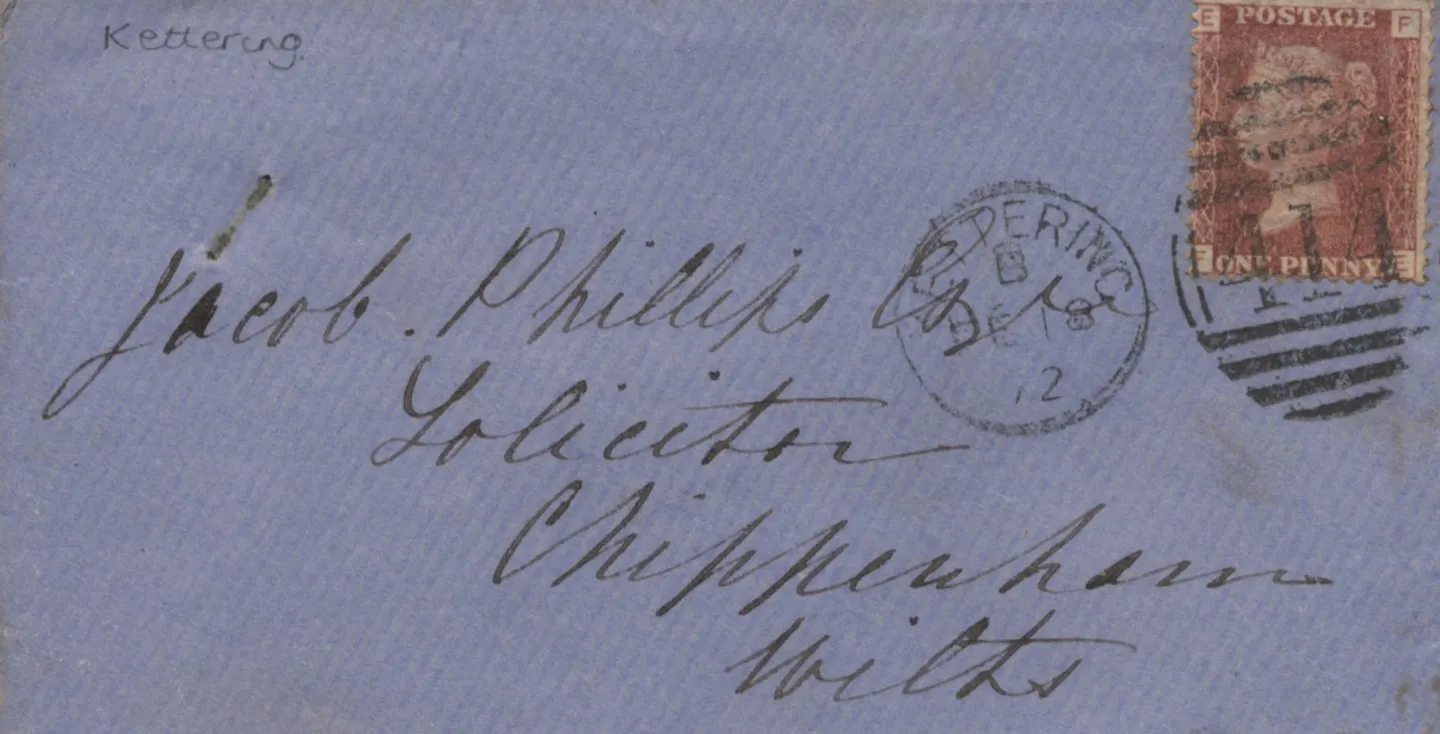 Kettering.
E POSTAGE F
Jacob. Phillips Esqre
KETTERING
B
DE 18
72
414
F ONE PENNY E
Solicitor
Chippenham
Wilts